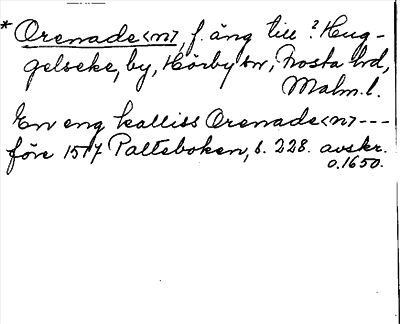 * Orenade<n>, f. äng till ? Heug-
gelseke, by, Hörby sn, Frosta hd,
Malm. l.
En eng kalliss Orenade<n> ---
före 1517 Palteboken, s. 228. avskr.
o. 1650.